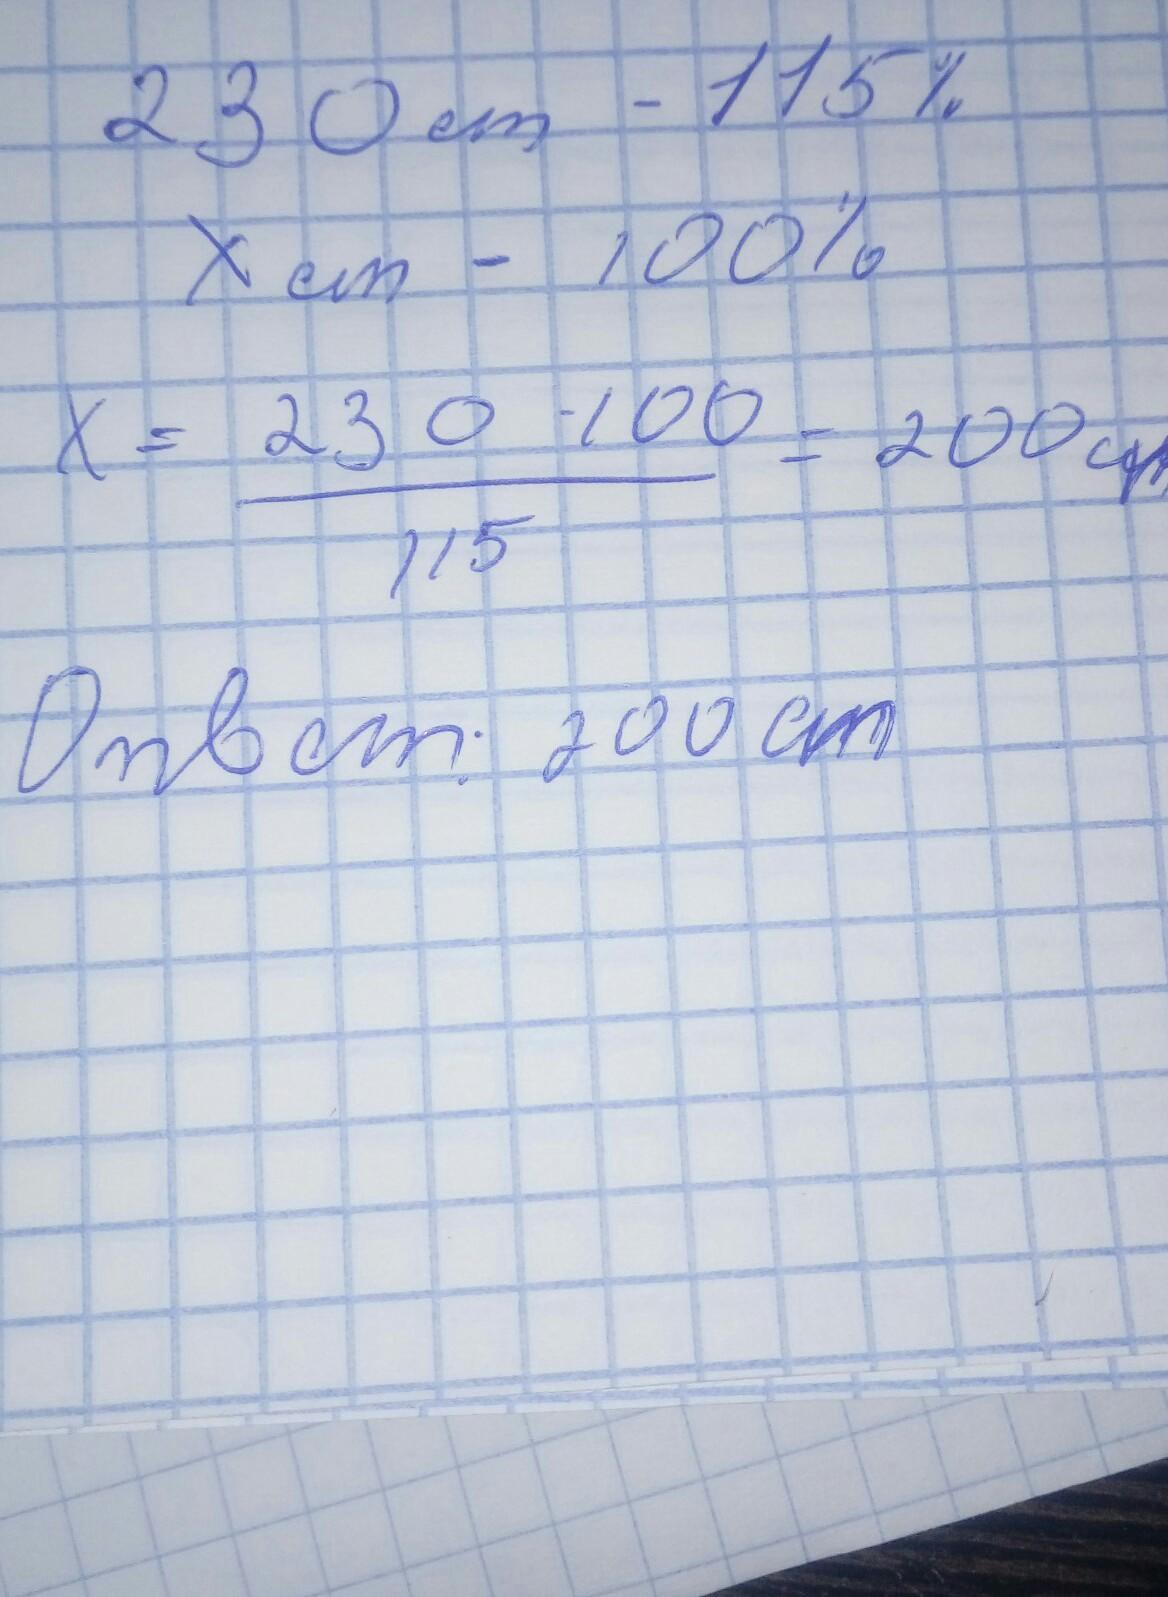 230 ст - 115%
X ст - 100%
X = 230 · 100 / 115 = 200 ст
Ответ: 200 ст